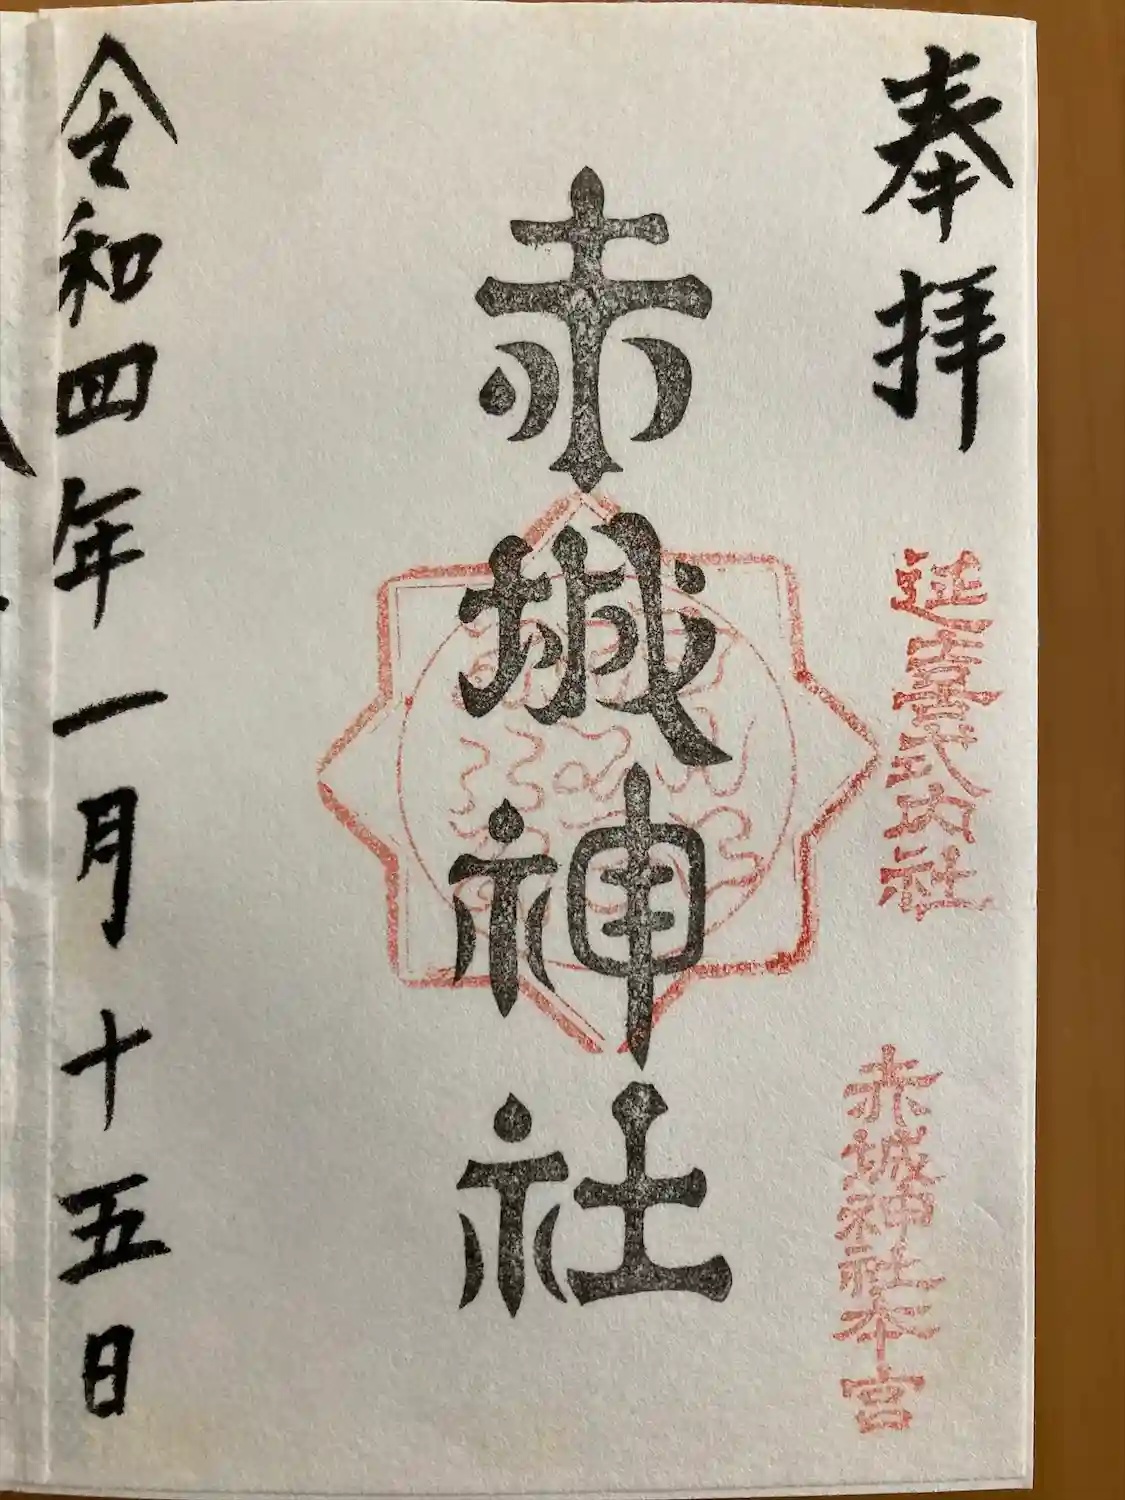 奉拝
延喜式内社
赤城神社本宮
赤城神社
令和四年一月十五日